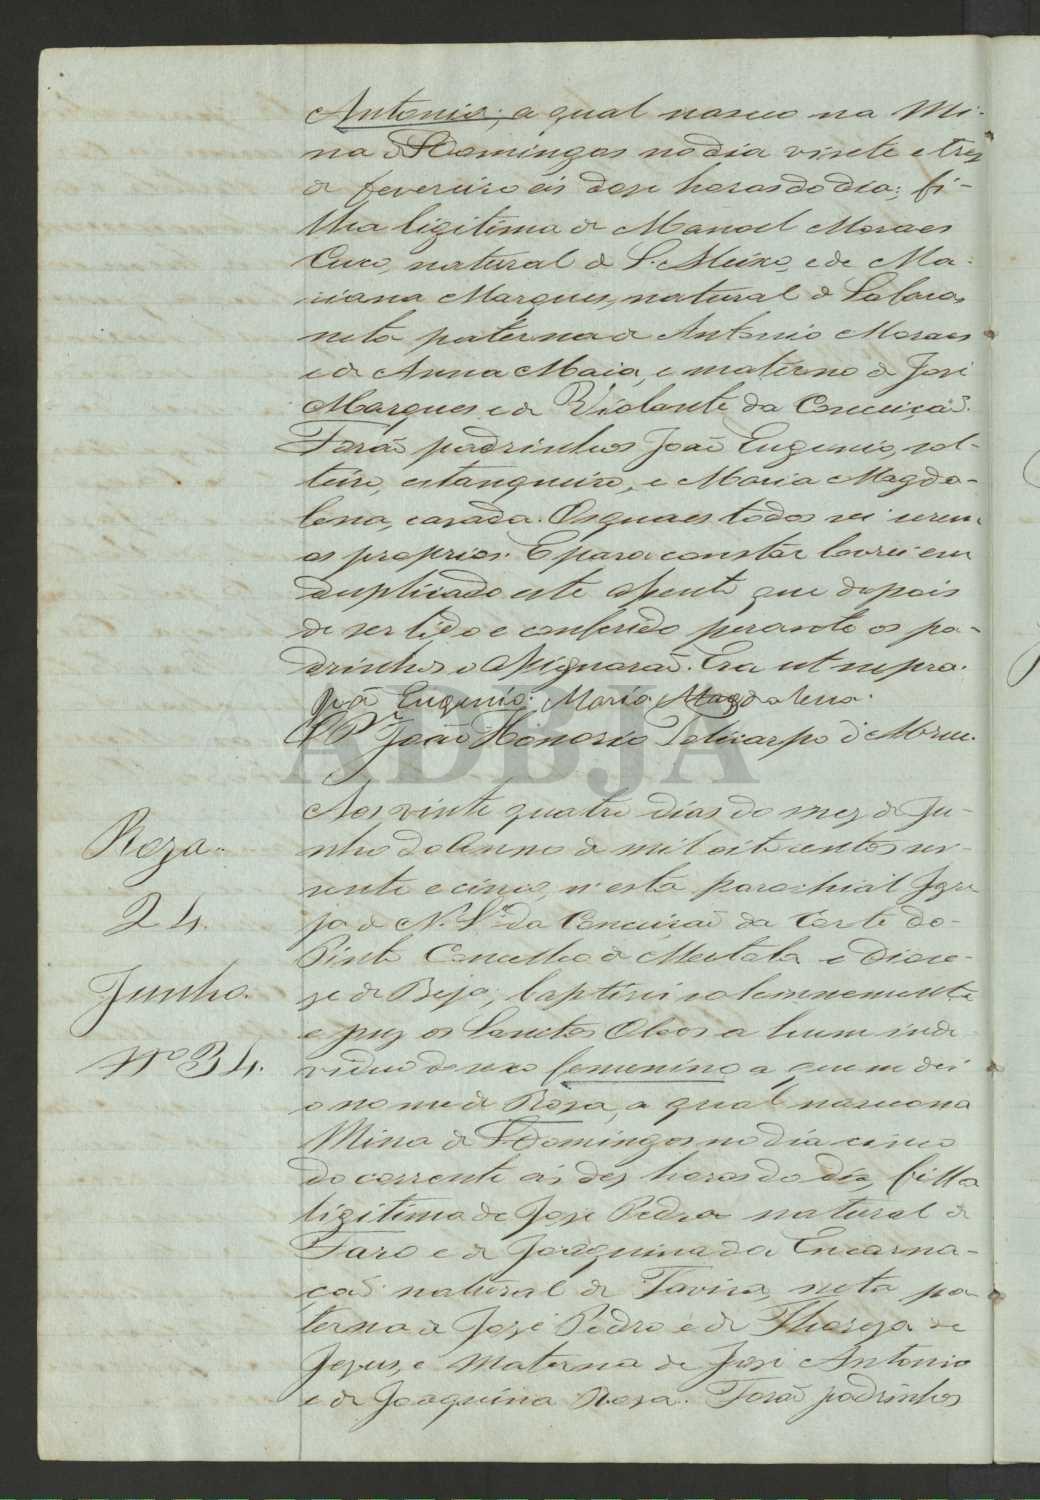 Antonia, a qual nasceo na Mi-
na de S. Domingos no dia vinte e tres
de fevereiro ás doze horas do dia; fi-
lha ligitima de Manoel Moraes
natural de S. Aleixo, e de Ma-
riana Marques, natural de
neta paterna de Antonio Moraes
e de Anna Maia, e materno de José
Marques e de Violante da Conceição.
Forão padrinhos João Eugenio, sol-
teiro, estanqueiro, e Maria Magda-
lena, casada. Os quaes todos sei serem
os proprios. E para constar lavrei em
duplicado este assento que depois
de ser lido e conferido perante os pa-
drinhos o assignarão. Era ut supra.
João Eugenio. Maria Magdalena.
O Pr. João Honorio Policarpo d'Abreu.
ADBJA
Roza.
24
Junho.
Nº 34.
Aos vinte quatro dias do mez de Ju-
nho do Anno de mil oito centos se-
tenta e cinco, n'esta parochial Igre
ja de N. Sra. da Conceição da Corte do-
Pinto Concelho de Mertola e Dioce-
ze de Beja, baptisei solemnemente
e puz os Sanctos Oleos a hum indi
viduo de sexo femenino a quem dei
o nome de Roza, a qual nasceo na
Mina de S. Domingos no dia cinco
do corrente ás dez horas do dia, filha
ligitima de José Pedro natural de
Faro e de Joaquina da Encarna-
ção natural de Tavira, neta pa-
terna de José Pedro e de Thereza de
Jezus, e Materna de José Antonio
e de Joaquina Roza. Forão padrinhos